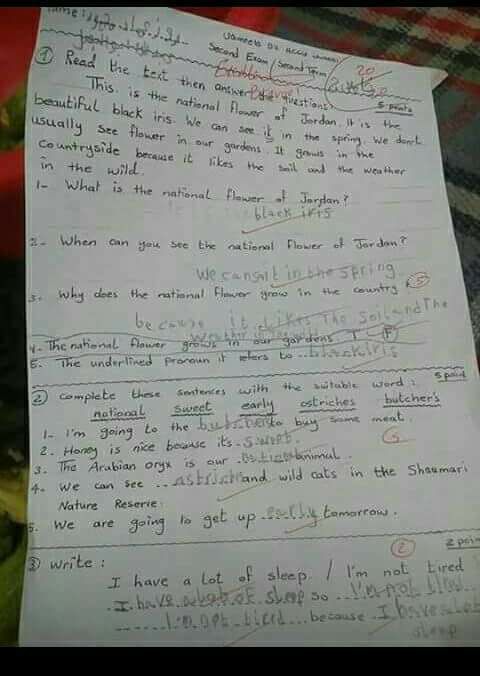 Second Exam / Second Term
20
5 points
① Read the text then answer the questions:
This is the national flower of Jordan. It is the
beautiful black iris. We can see it in the spring. We don't
usually see flower in our gardens. It grows in the
countryside because it likes the soil and the weather
in the wild.
1- What is the national flower of Jordan?
black iris
2- When can you see the national flower of Jordan?
We can see it in the spring
3. Why does the national flower grow in the country
5
because it likes the soil and the
weather
4- The national flower grows in our gardens T F
5. The underlined pronoun it refers to .. black iris
5 point
② Complete these sentences with the suitable word:
national sweet early ostriches butcher's
1- I'm going to the butcher's to buy some meat.
2. Honey is nice because it's sweet.
5
3. The Arabian oryx is our national animal.
4. We can see ... ostrich and wild cats in the Shaumari
Nature Reserve.
5. We are going to get up early tomorrow.
2
2 poin
③ Write:
I have a lot of sleep. / I'm not tired
I have a lot of sleep so I'm not tired
I'm not tired because I have a lot
sleep